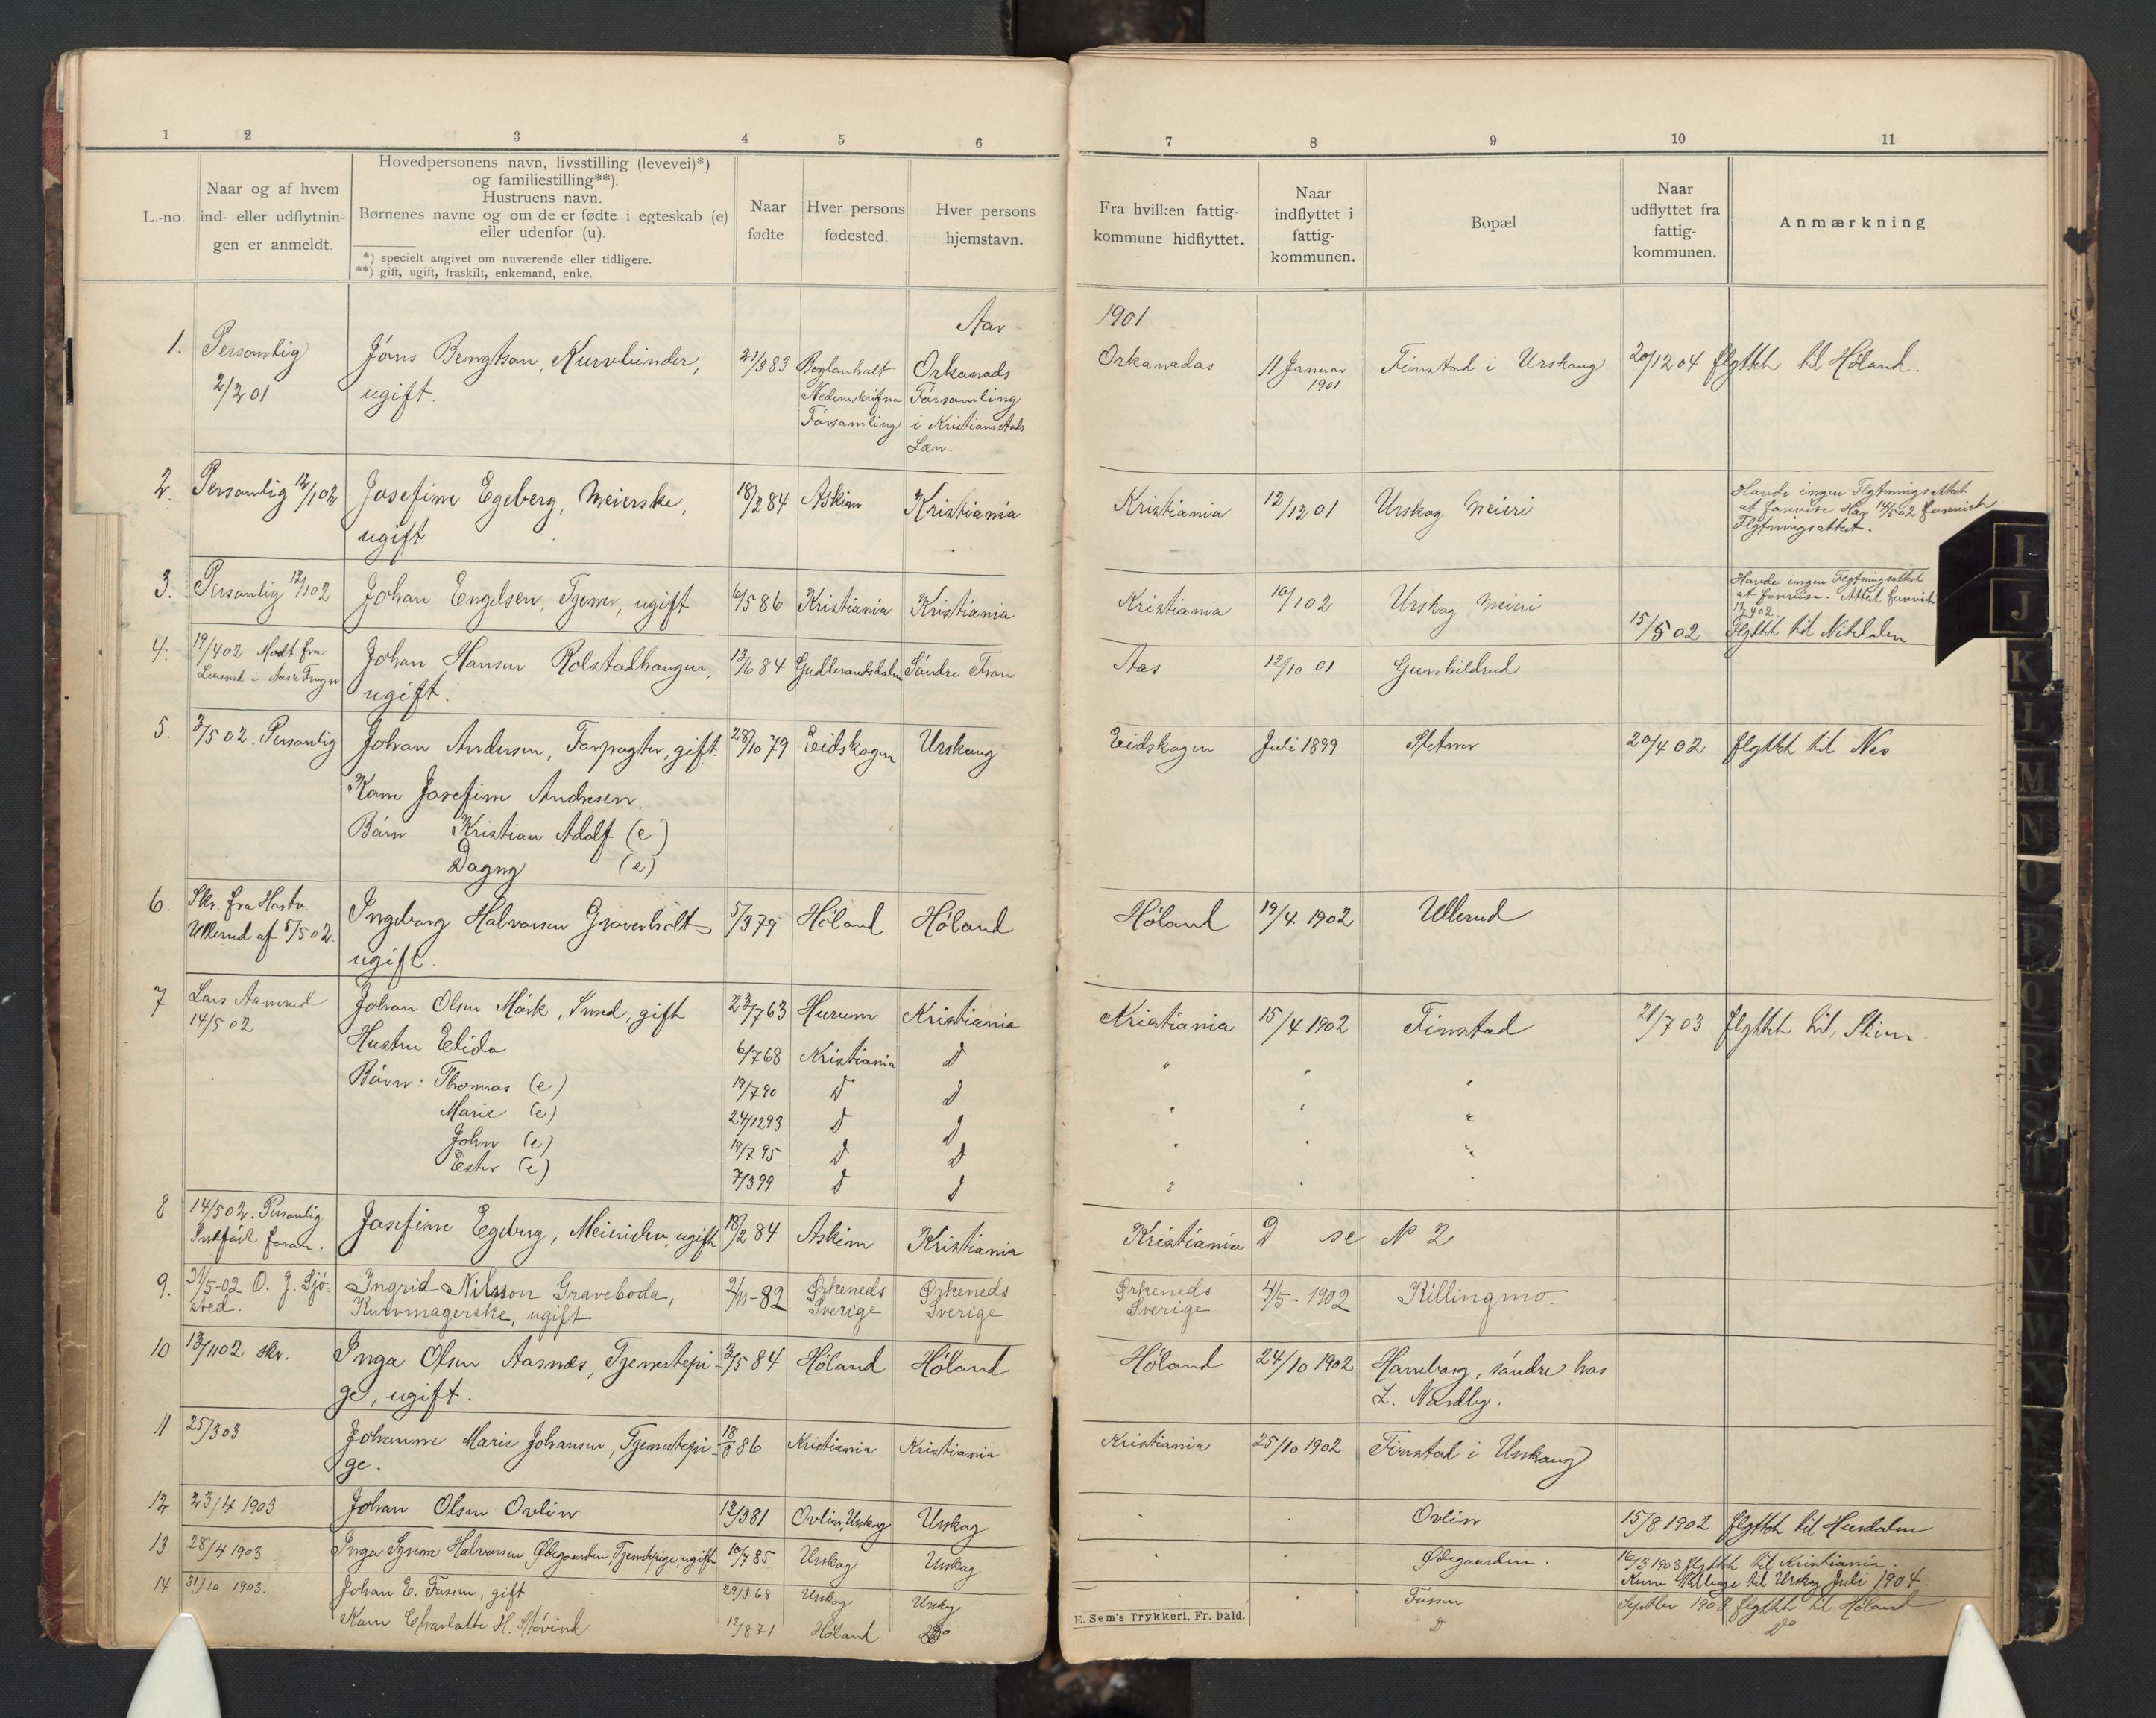 1 2 3 4 5 6 7 8 9 10 11
L.-no.
Naar og af hvem
ind- eller udflytnin-
gen er anmeldt.
Hovedpersonens navn, livsstilling (levevei)*)
og familiestilling**).
Hustruens navn.
Børnenes navne og om de er fødte i egteskab (e)
eller udenfor (u).
*) specielt angivet om nuværende eller tidligere.
**) gift, ugift, fraskilt, enkemand, enke.
Naar
fødte.
Hver persons
fødested.
Hver persons
hjemstavn.
Fra hvilken fattig-
kommune hidflyttet.
Naar
indflyttet i
fattig-
kommunen.
Bopæl
Naar
udflyttet fra
fattig-
kommunen.
Anmærkning
Aar 1901
1. Personlig Jöns Bengtson, Kurvbinder, 21/3 83 Orkanads Orkanadas 11 Januar Finstad i Urskaug 20/12 04 flyttet til Høland.
2/2 01 ugift. Församling 1901
Församling i Kristianstads
Læn.
2. Personlig 12/1 02 Josefine Egeberg, Meierske, 18/2 84 Askim Kristiania Kristiania 12/12 01 Urskog Meieri Havde ingen Flytningsattest
ugift at forevise Har 14/5 02 forevist
Flytningsattest.
3. Personlig 12/1 02 Johan Engelsen, Tjener, ugift 6/5 86 Kristiania Kristiania Kristiania 10/1 02 Urskog Meieri Havde ingen Flytningsattest
at forevise. Attest forevist
15/5 02 Flyttet til Nitedalen
4. 19/4 02 Modt fra Johan Hansen Rolstadhaugen, 13/6 84 Gudbrandsdalen Söndre Fron Aas 12/10 01 Gunhildrud
Lensmd i ugift.
5. 3/5 02. Personlig Johan Andersen, Forpagter, gift. 28/10 79 Eidskogen Urskaug Eidskogen Juli 1899 20/4 02 flyttet til Nes
Kone Josefine Andresen.
Börn Kristian Adolf (e)
Dagny (e)
6. Skr. fra Ullerud af 5/5 02. Ingeborg Halvorsen 5/3 79 Høland Høland Høland 19/4 1902 Ullerud
ugift.
7 Lars Johan Olsen Mörk, Smed, gift 23/7 63 Hurum Kristiania Kristiania 15/4 1902 Finstad 21/7 03 flyttet til, Skien
14/5 02 Hustru Elida 6/7 68 Kristiania D " " "
Börn: Thomas (e) 19/7 90 D D " " "
Marie (e) 24/12 93 D D " " "
John (e) 19/7 95 D D " " "
Ester (e) 7/3 99 D D
8 14/5 02. Personlig Josefine Egeberg, Meieridev, ugift 18/2 84 Askim Kristiania Kristiania D se No 2
Indført foran.
9. 31/5-02 O. J. Sjö- Ingrid Nilsson Graveboda, 2/11-82 Ørkeneds Ørkeneds Ørkeneds 4/5-1902 Killingmo.
sted. Kurvmagerske, ugift Sverige Sverige Sverige
10 13/11 02 skr. Inga Olsen Aasnæs, Tjenestepi- 3/5 84 Høland Høland Høland 24/10 1902 Haneborg, söndre hos
ge, ugift. L. Nordby.
11 25/3 03 Johanne Marie Johansen, Tjenestepi- 18/8 86 Kristiania Kristiania Kristiania 25/10 1902 Finstad i Urskaug
ge.
12 23/4 1903 Johan Olsen Ovlien 12/3 81 Ovlien, Urskog Urskog Ovlien 15/8 1902 flyttet til Hurdalen
13 28/4 1903 Inga Halvorsen Ødegaarden, Tjenestepige, ugift 10/7 85 Urskog Urskog Ødegaarden. 16/3 1903 flyttet til Kristiania.
Kom tilbage til Urskog Juli 1904.
14 31/10 1903. Johan E. Fossen, gift 29/3 68 Urskog Urskog Fossen Septber 1903 flyttet til Høland
Kone Charlotte H. 12/8 71 Høland Do D Do
E. Sem's Trykkeri, Fr. hald.
I
J
K
L
M
N
O
P
Q
R
S
T
U
V
W
X
Y